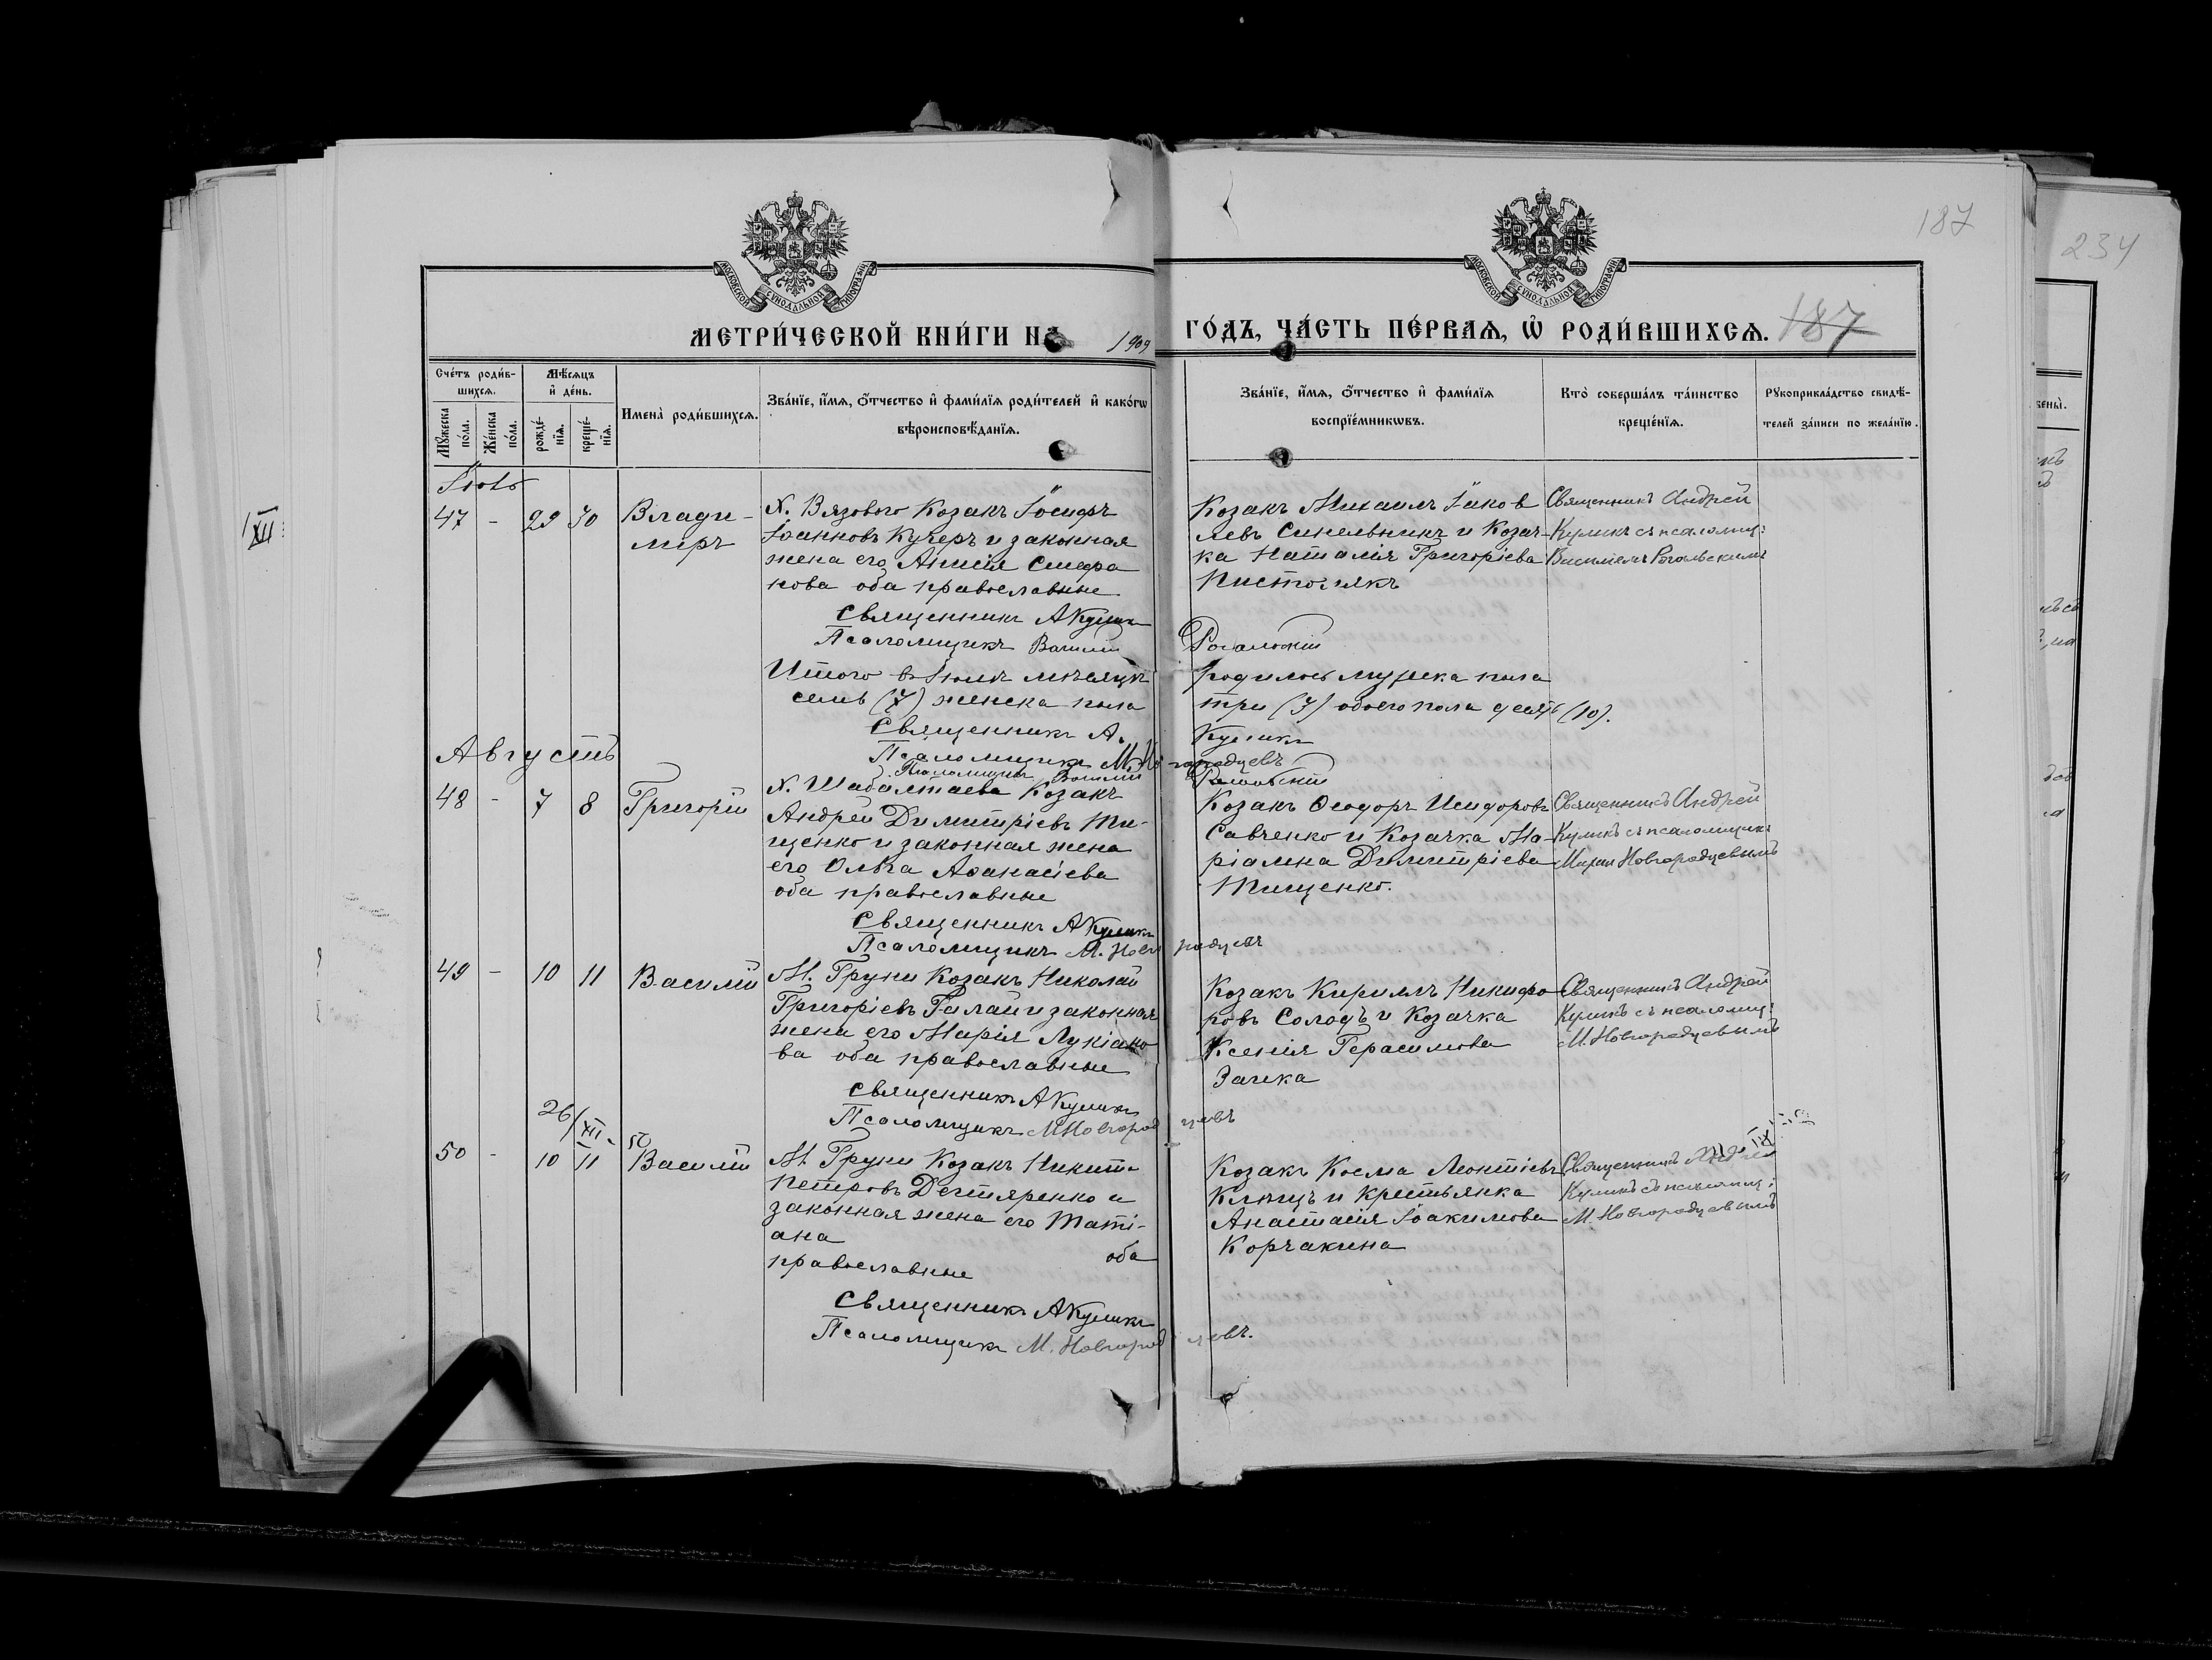 187
234
МОСКОВСКОЙ СѴНОДАЛЬНОЙ ТИПОГРАФІИ
МОСКОВСКОЙ СѴНОДАЛЬНОЙ ТИПОГРАФІИ
МЕТРИ́ЧЕСКОЙ КНИ́ГИ НА 1909 ГО́ДЪ, ЧА́СТЬ ПЕ́РВАѦ, Ѡ҆ РОДИ́ВШИХСѦ. 187
Сче́тъ роди́в-
шихсѧ.
Мꙋжеска по́ла.
Же́нска по́ла.
Мѣ́сѧцъ
и҆ де́нь.
рожде́-
нїѧ.
креще́-
нїѧ.
Имена̀ роди́вшихсѧ.
Зва́нїе, и҆́мѧ, ѻ҆́тчество и҆ фами́лїѧ роди́телей и҆ како́гѡ
вѣроисповѣ́данїѧ.
Зва́нїе, и҆́мѧ, ѻ҆́тчество и҆ фами́лїѧ
воспрїе́мникѡвъ.
Кто̀ соверша́лъ та́инство
креще́нїѧ.
Рꙋкоприкла́дство свидѣ́-
телей за́писи по жела́нїю.
Іюль
47 - 29 30 Влади-
миръ
Х. Вязового Козакъ Іосифъ
Іоанновъ Кучеръ и законная
жена его Анисія Стефа
нова оба православные
Священникъ А Кулик
Псаломщикъ Василий
Козакъ Михаилъ Іаков
левъ Синельникъ и Козач-
ка Наталія Григоріева
Пистолякъ
Рогальскій
Священникъ Андрей
Куликъ съ псаломщ:
Василіемъ Рогальскимъ
Итого в Іюлѣ мѣсяцѣ родилось мужеска пола
семь (7) женска пола три (3) обоего пола десять (10).
Священникъ А. Куликъ
Псаломщикъ М. Новгородцевъ
Псаломщикъ Василій Рогальскій
Августъ
48 - 7 8 Григорій
Х. Шабалтаева Козакъ
Андрей Димитріевъ Ти-
щенко и законная жена
его Ольга Аѳанасіева
оба православные
Священникъ А Куликъ
Псаломщикъ М. Новгородцевъ
Козакъ Ѳеодоръ Исидоровъ
Савченко и Козачка Ма-
ріамна Димитріева
Тищенко.
Священникъ Андрей
Куликъ съ псаломщик:
Михаил Новгородцевымъ
49 - 10 11 Василій
М. Груни Козакъ Николай
Григоріевъ Галай и законная
жена его Марія Лукіано
ва оба православные
Священникъ А Куликъ
Псаломщикъ М Новгородцевъ
Козакъ Кириллъ Никифо
ровъ Солодъ и Козачка
Ксенія Герасимова
Заика
Священникъ Андрей
Куликъ съ псаломщ:
М. Новгородцевымъ
26/XII-50
50 - 10 11 Василій
М. Груни Козакъ Никита
Петровъ Дегтяренко и
законная жена его Таті-
ана
оба
православные
Священникъ А Куликъ
Псаломщикъ М. Новгородцевъ.
Козакъ Косма Леонтіевъ
Клющъ и крестьянка
Анастасія Іоакимова
Корчакина
Священникъ Андрей
Куликъ съ псаломщ:
М. Новгородцевымъ
XII